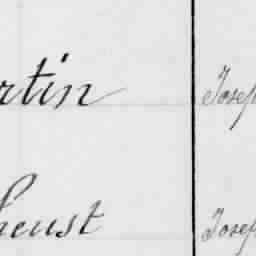 rtin Josep
heust Josep